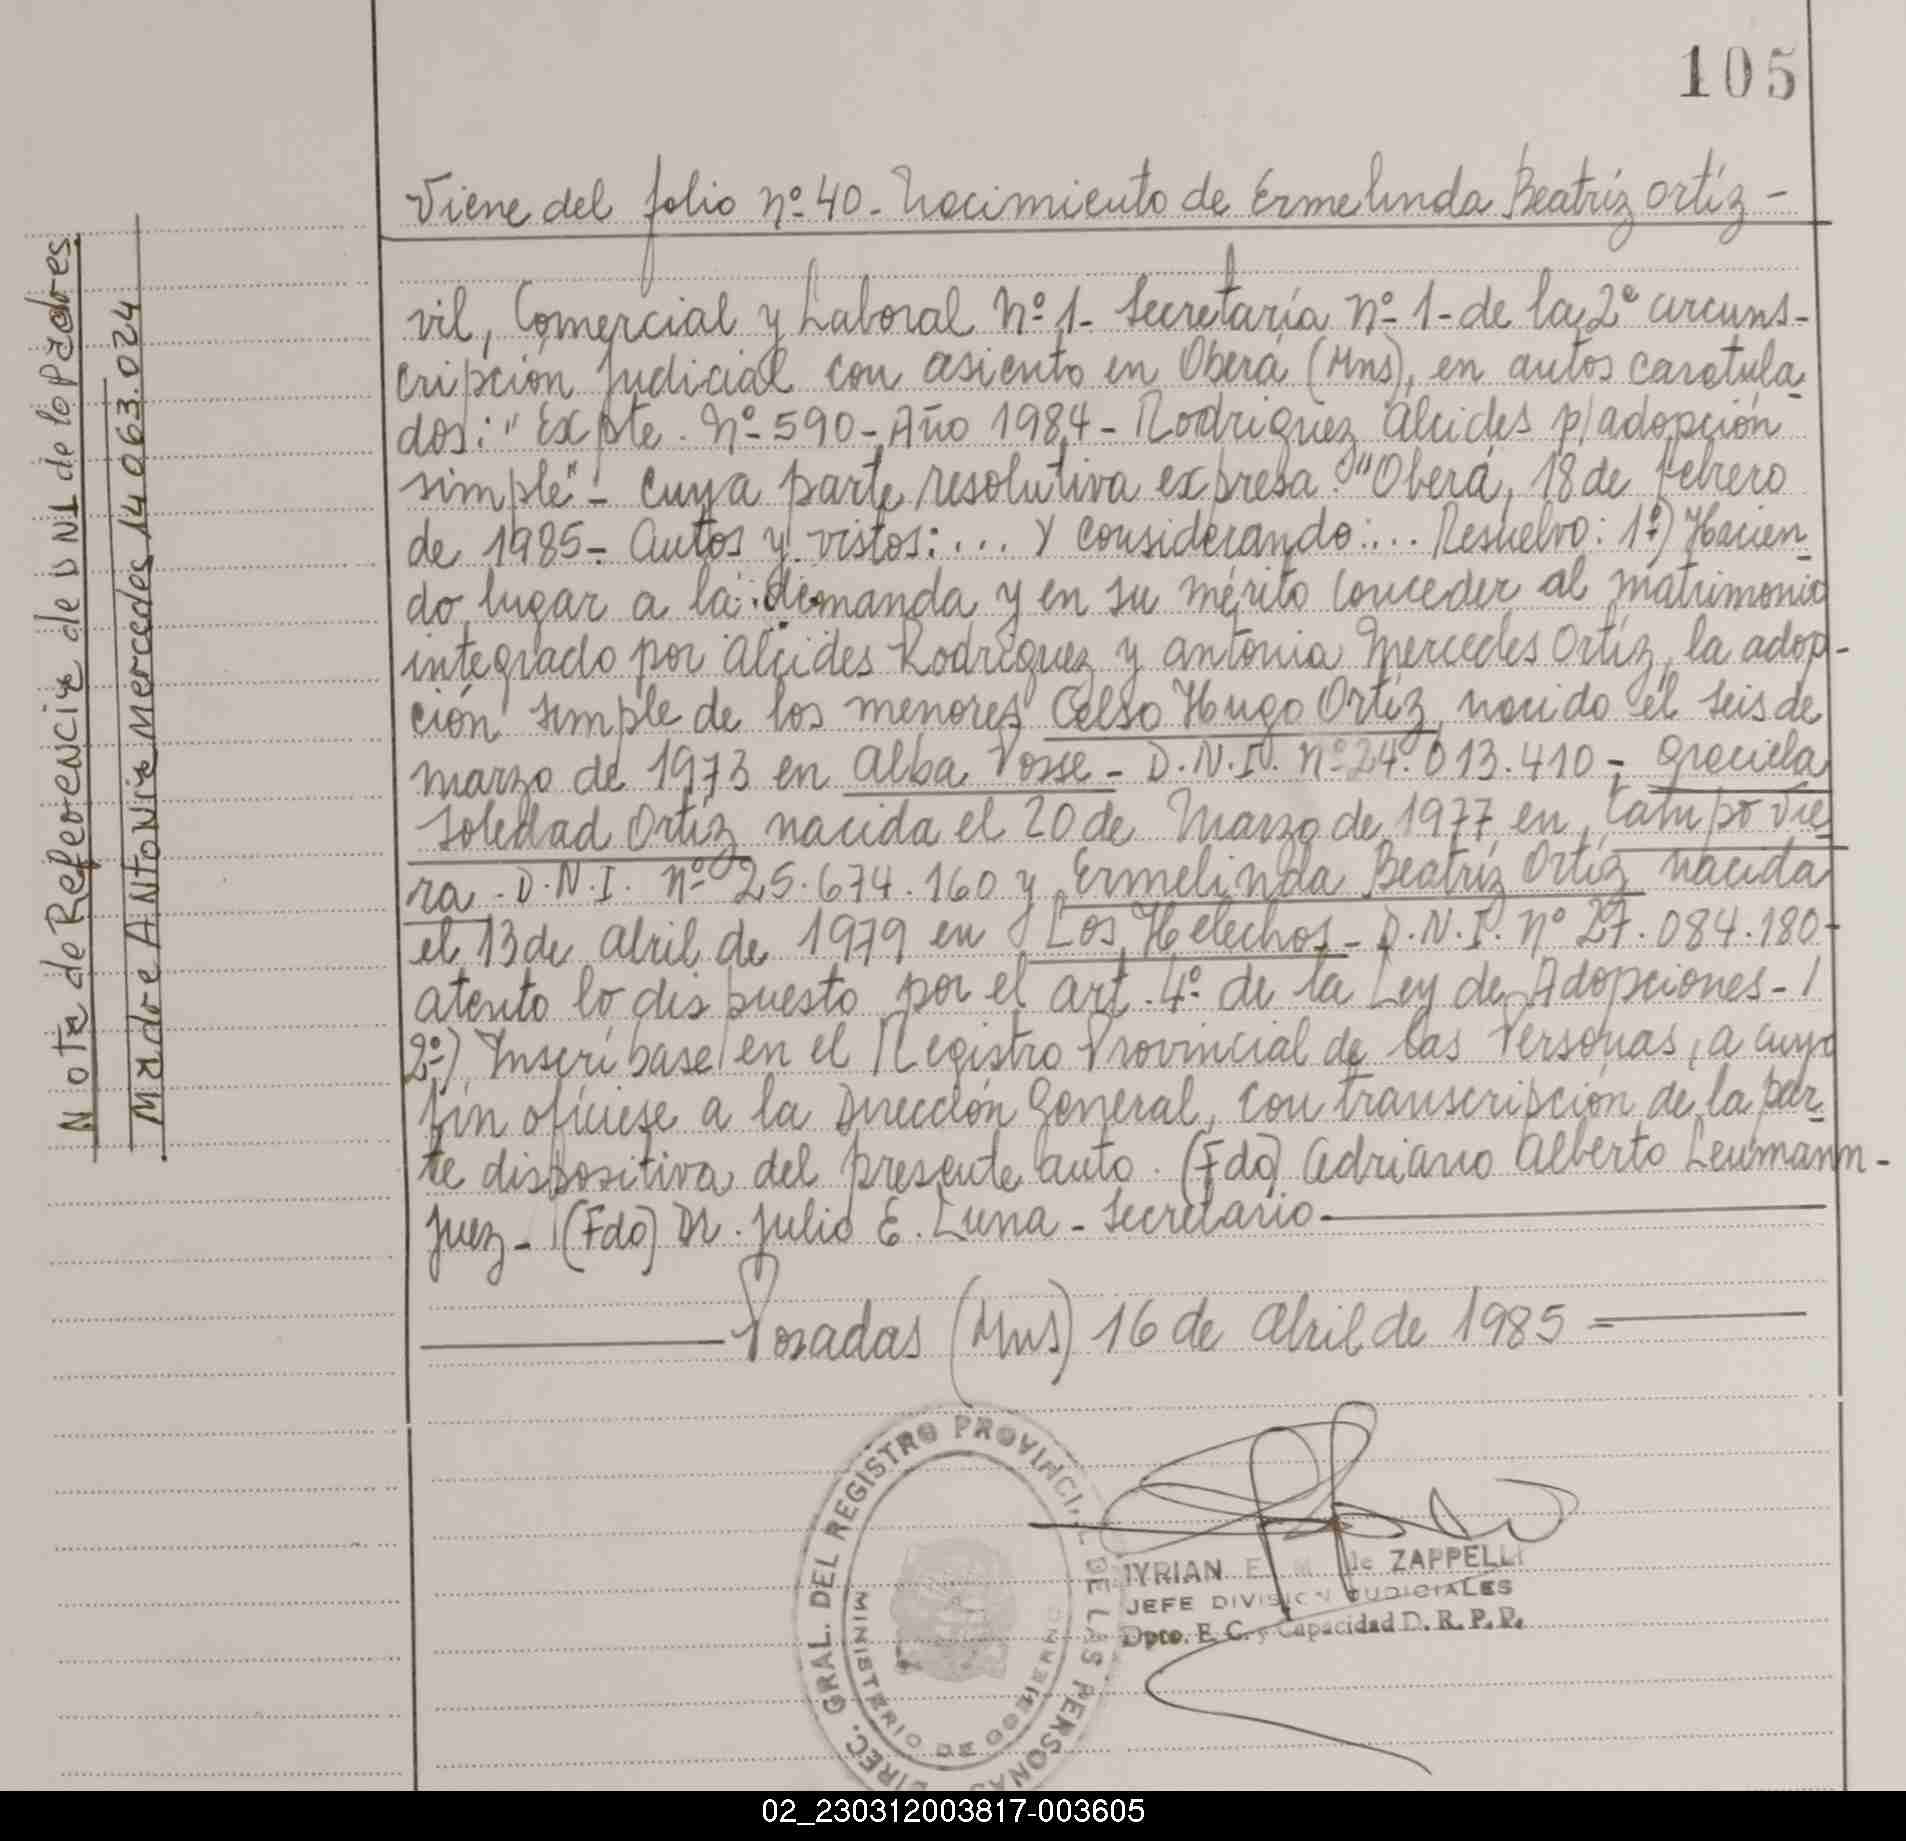 105
Viene del folio nº 40 - Nacimiento de Ermelinda Beatríz Ortíz -
vil, Comercial y Laboral nº 1 - Secretaría nº 1 - de la 2º circuns-
cripción Judicial con asiento en Oberá (Mns), en autos caratula-
dos: "Expte. Nº 590 - Año 1984 - Rodriguez Alcides p/adopción
simple" - cuya parte resolutiva expresa: "Oberá, 18 de febrero
de 1985 - Autos y vistos: ... Y Considerando: ... Resuelvo: 1º) Hacien-
do lugar a la demanda y en su mérito conceder al matrimonio
integrado por Alcides Rodríguez y Antonia Mercedes Ortíz, la adop-
ción simple de los menores Celso Hugo Ortíz, nacido el seis de
marzo de 1973 en Alba Posse - D.N.I. nº 24.013.410 - Graciela
Soledad Ortíz nacida el 20 de Marzo de 1977 en Campo Vie
ra - D.N.I. nº 25.674.160 y Ermelinda Beatríz Ortíz nacida
el 13 de Abril de 1979 en Los Helechos - D.N.I. nº 27.084.180 -
atento lo dispuesto por el art. 4º de la Ley de Adopciones - /
2º) Inscríbase en el Registro Provincial de las Personas, a cuyo
fin ofíciese a la Dirección General, con transcripción de la par-
te dispositiva del presente auto. (Fdo) Adriano Alberto Leumann -
Juez - (Fdo) Dr. Julio E. Luna - Secretario
Posadas (Mns) 16 de Abril de 1985 =
Nota de Referencia de DNI de lo Padres
Madre Antonia Mercedes 14.063.024
DIREC. GRAL. DEL REGISTRO PROVINCIAL DE LAS PERSONAS
MINISTERIO DE GOBIERNO
MYRIAN E. M. de ZAPPELLI
JEFE DIVISION JUDICIALES
Dpto. E. C. y Capacidad D. R. P. P.
02_230312003817-003605